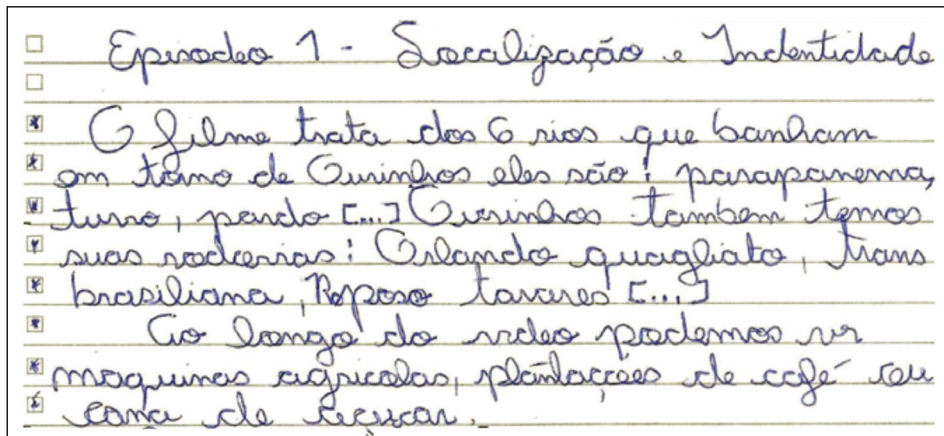 Episodeo 1 - Localização e Indentidade
O filme trata dos 6 rios que banham
em torno de Ourinhos eles são: parapanema,
turvo, pardo [...] Ourinhos tambem temos
suas rodovias: Orlando quagliato, trans
brasiliana, Raposo tavares [...]
Ao longo do video podemos ver
maquinas agricolas, plantaçoes de café ou
cana de açucar.